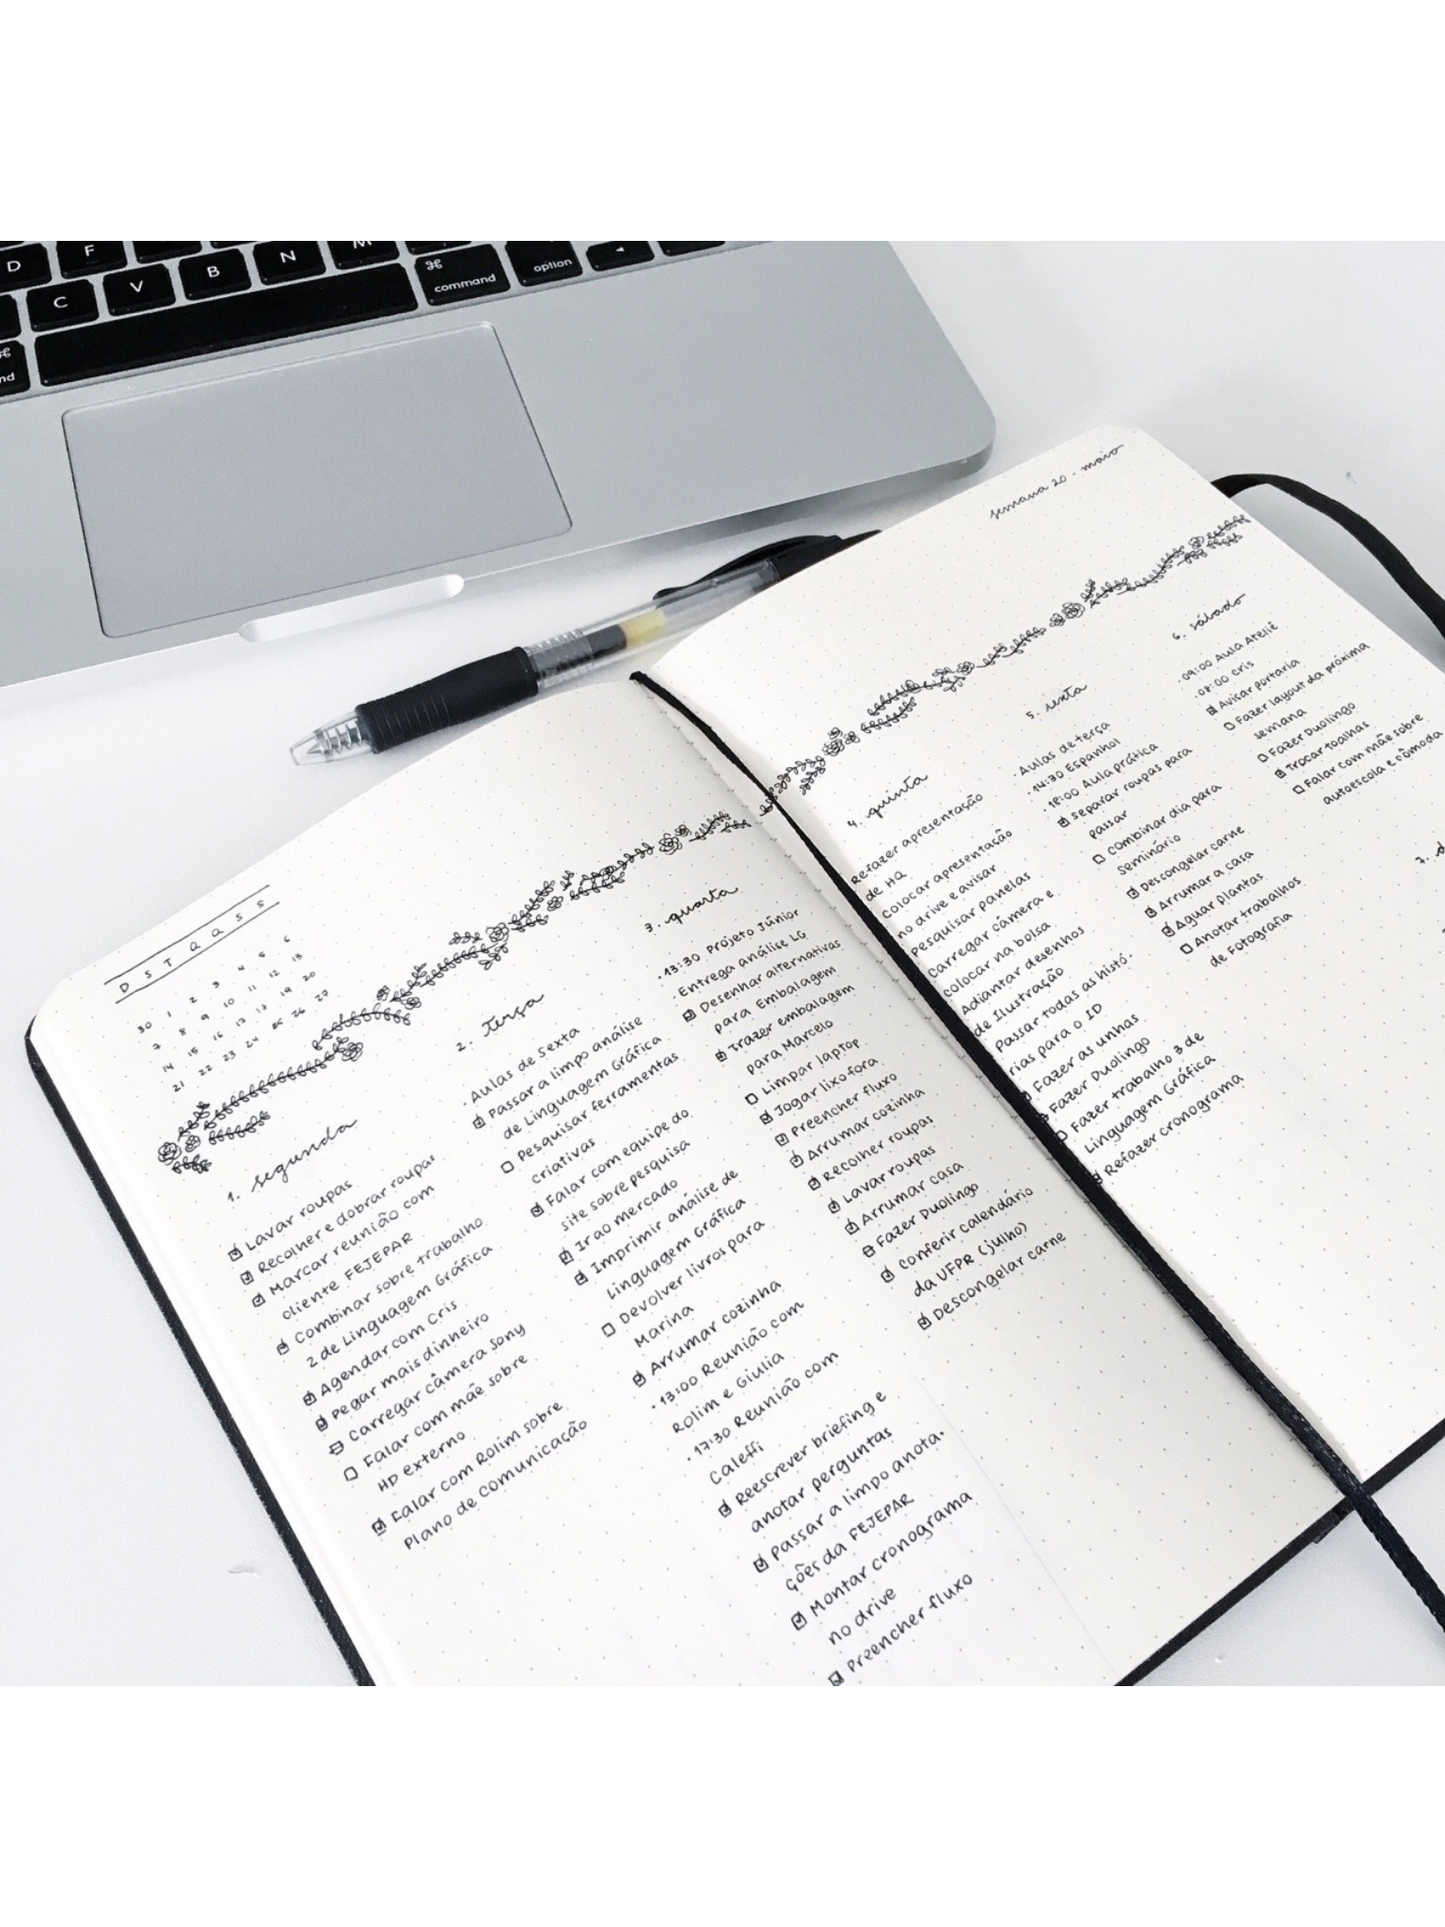 D
F
C
V
B
N
M
⌘
command
option
semana 20 - maio
D S T Q Q S S
30 1 2 3 4 5 6
7 8 9 10 11 12 13
14 15 16 17 18 19 20
21 22 23 24 25 26 27
1. segunda
Lavar roupas
Recolher e dobrar roupas
Marcar reunião com
cliente FEJEPAR
Combinar sobre trabalho
2 de Linguagem Gráfica
Agendar com Cris
Pegar mais dinheiro
Carregar câmera sony
Falar com mãe sobre
HD externo
Falar com Rolim sobre
Plano de Comunicação
2. terça
· Aulas de Sexta
Passar a limpo análise
de Linguagem Gráfica
Pesquisar ferramentas
criativas
Falar com equipe do
site sobre pesquisa
Ir ao mercado
Imprimir análise de
Linguagem Gráfica
Devolver livros para
Marina
Arrumar cozinha
· 13:00 Reunião com
Rolim e Giulia
· 17:30 Reunião com
Caleffi
Reescrever briefing e
anotar perguntas
Passar a limpo anota-
ções da FEJEPAR
Montar cronograma
no drive
Preencher fluxo
3. quarta
· 13:30 Projeto Júnior
· Entrega análise LG
Desenhar alternativas
para Embalagem
Trazer embalagem
para Marcelo
Limpar laptop
Jogar lixo fora
Preencher fluxo
Arrumar cozinha
Recolher roupas
Lavar roupas
Arrumar casa
Fazer Duolingo
Conferir calendário
da UFPR (julho)
Descongelar carne
4. quinta
Refazer apresentação
de HQ
Colocar apresentação
no drive e avisar
Pesquisar panelas
Carregar câmera e
colocar na bolsa
Adiantar desenhos
de Ilustração
Passar todas as histó-
rias para o ID
Fazer as unhas
Fazer Duolingo
Fazer trabalho 3 de
Linguagem Gráfica
Refazer cronograma
5. sexta
· Aulas de terça
· 14:30 Espanhol
· 18:00 Aula prática
Separar roupas para
passar
Combinar dia para
Seminário
Descongelar carne
Arrumar a casa
Aguar plantas
Anotar trabalhos
de Fotografia
6. sábado
· 09:00 Aula Ateliê
Cris
Avisar portaria
Fazer layout da próxima
semana
Fazer Duolingo
Trocar toalhas
Falar com mãe sobre
autoescola e cômoda
7. d